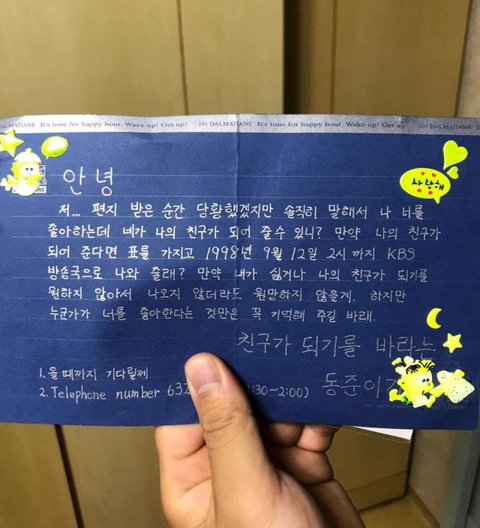 DALMATIANS It's time for happy hour. Wake up! Get up! 101 DALMATIANS It's time for happy hour. Wake up! Get up! 101 DALMATIANS It's
안녕
사랑해
저... 편지 받은 순간 당황했겠지만 솔직히 말해서 나 너를
좋아하는데 네가 나의 친구가 되어 줄수 있니? 만약 나의 친구가
되어 준다면 표를 가지고 1998년 9월 12일 2시 까지 KBS
방송국으로 나와 줄래? 만약 내가 싫거나 나의 친구가 되기를
원하지 않아서 나오지 않더라도 원망하지 않을게. 하지만
누군가가 너를 좋아한다는 것만은 꼭 기억해 주길 바래.
친구가 되기를 바라는
동준이가
1. 올 때까지 기다릴께
2. Telephone number 632 :30~2:00)